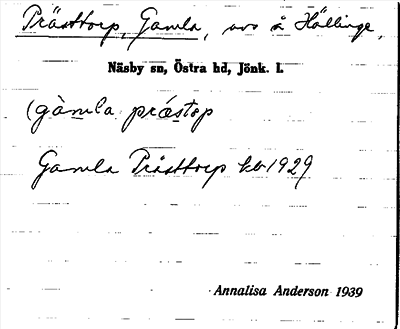 Prästtorp, Gamla, avs å Hällinge,
Näsby sn, Östra hd, Jönk. l.
(gàmla prǽstop
Gamla Prästtorp kb 1929
Annalisa Anderson 1939